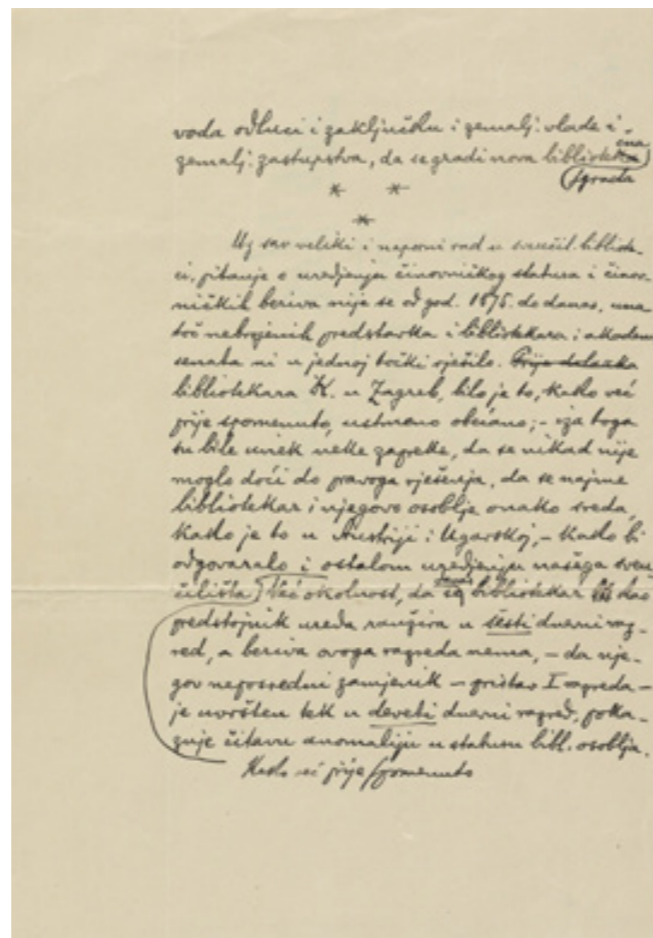 voda odluci i zaključku i zemalj: vlade i
zemalj: zastupstva, da se gradi nova bibliotečna
zgrada
* *
*
Uz sav veliki i naporni rad u sveučil. bibliote-
ci, pitanje o uredjenju činovničkog statusa i činov-
ničkih beriva nije se od god. 1875. do danas, una
toč nebrojenih predstavka i bibliotekara i akadem
senata ni u jednoj točki riješilo. Prije dolazka
bibliotekara K. u Zagreb, bilo je to, kako već
prije spomenuto, ustmeno obećano; – iza toga
su bile uviek neke zapreke, da se nikad nije
moglo doći do pravoga rješenja, da se najme
bibliotekar i njegovo osoblje onako sreda,
kako je to u Austriji i Ugarskoj, – kako bi
odgovaralo i ostalom uredjenju našega sveu
čilišta. Već okolnost, da se bibliotekar kao
predstojnik ureda rangira u šesti dnevni raz-
red, a beriva ovoga razreda nema, – da nje-
gov neposredni zamjenik – pristav I razreda –
je uvršten tek u deveti dnevni razred, poka-
zuje čitavu anomaliju u statusu bibl. osoblja.
Kako već prije spomenuto